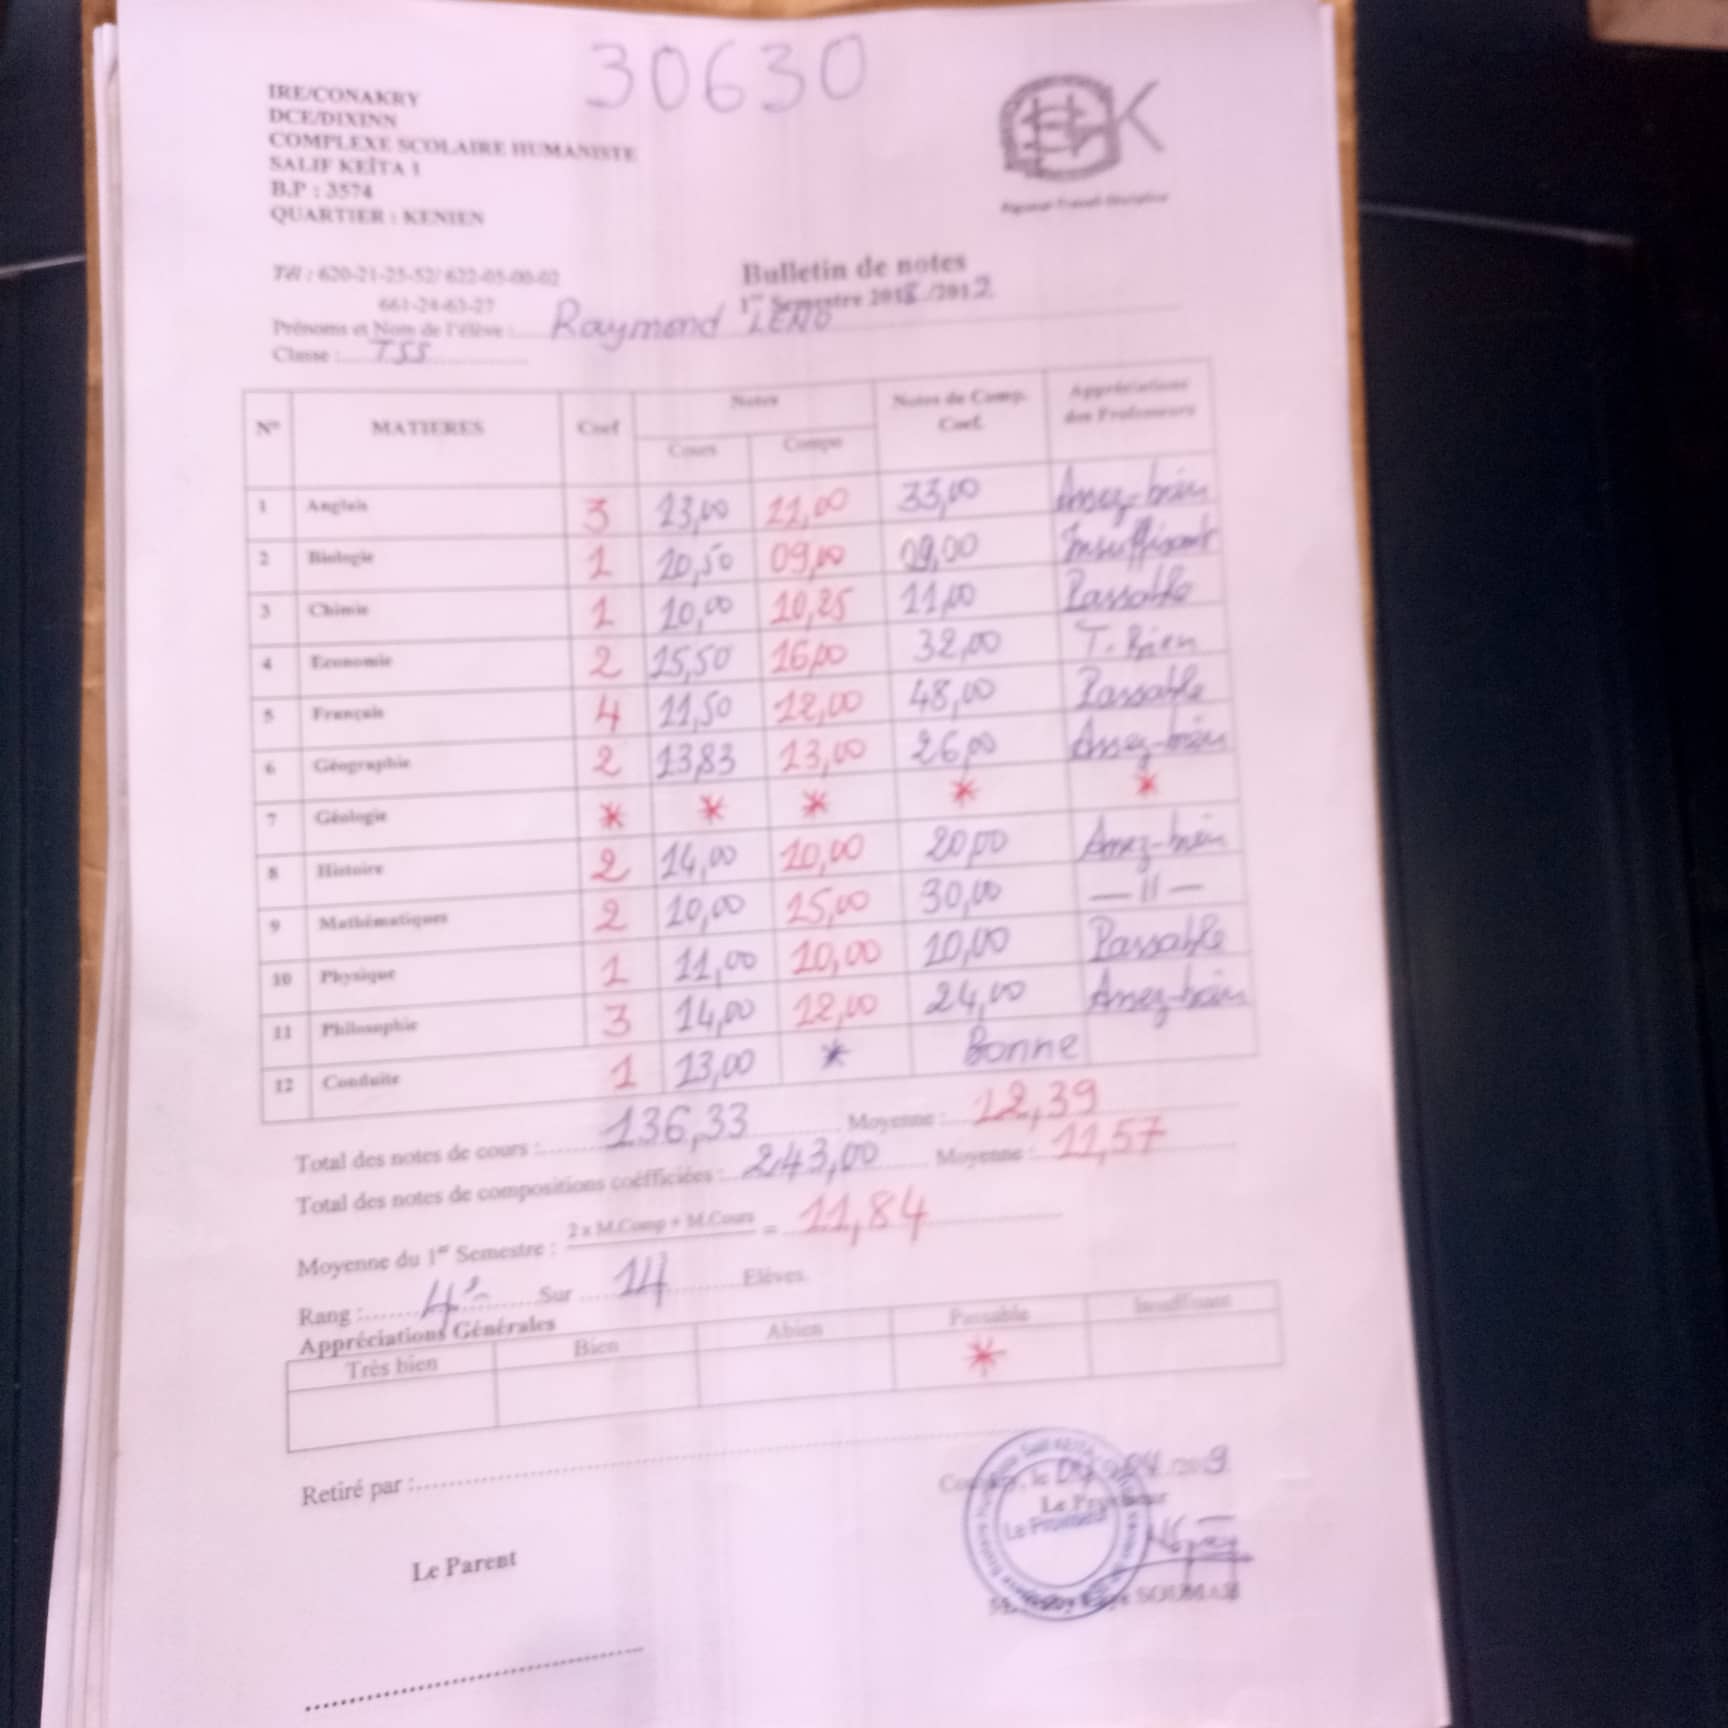 30630
IRE/CONAKRY
DCE/DIXINN
COMPLEXE SCOLAIRE HUMANISTE
SALIF KEÏTA 1
B.P : 3574
QUARTIER : KENIEN
Rigueur-Travail-Discipline
Tél : 620-21-25-52/ 622-05-00-02
661-24-63-27
Bulletin de notes
1er Semestre 2018/2019
Prénoms et Nom de l'élève : Raymond LENO
Classe : TSS
N° MATIERES Coef Notes Notes de Comp. Coef. Appréciations des Professeurs
Cours Compo
1 Anglais 3 13,00 11,00 33,00 Assez-bien
2 Biologie 1 10,50 09,00 09,00 Insuffisant
3 Chimie 1 10,00 10,25 11,00 Passable
4 Economie 2 15,50 16,00 32,00 T. Bien
5 Français 4 11,50 12,00 48,00 Passable
6 Géographie 2 13,83 13,00 26,00 Assez-bien
7 Géologie * * * * *
8 Histoire 2 14,00 10,00 20,00 Assez-bien
9 Mathématiques 2 10,00 15,00 30,00 — 11 —
10 Physique 1 11,00 10,00 10,00 Passable
11 Philosophie 3 14,00 12,00 24,00 Assez-bien
12 Conduite 1 13,00 * Bonne
Total des notes de cours : 136,33 Moyenne : 12,39
Total des notes de compositions coéfficiées : 243,00 Moyenne : 11,57
Moyenne du 1er Semestre : 2 x M.Comp + M.Cours = 11,84
Rang : 4e Sur 14 Elèves
Appréciations Générales
Très bien Bien Abien Passable Insuffisant
*
Retiré par :
le 04/2019
Le Proviseur
Le Proviseur
Le Parent
SOUMAH